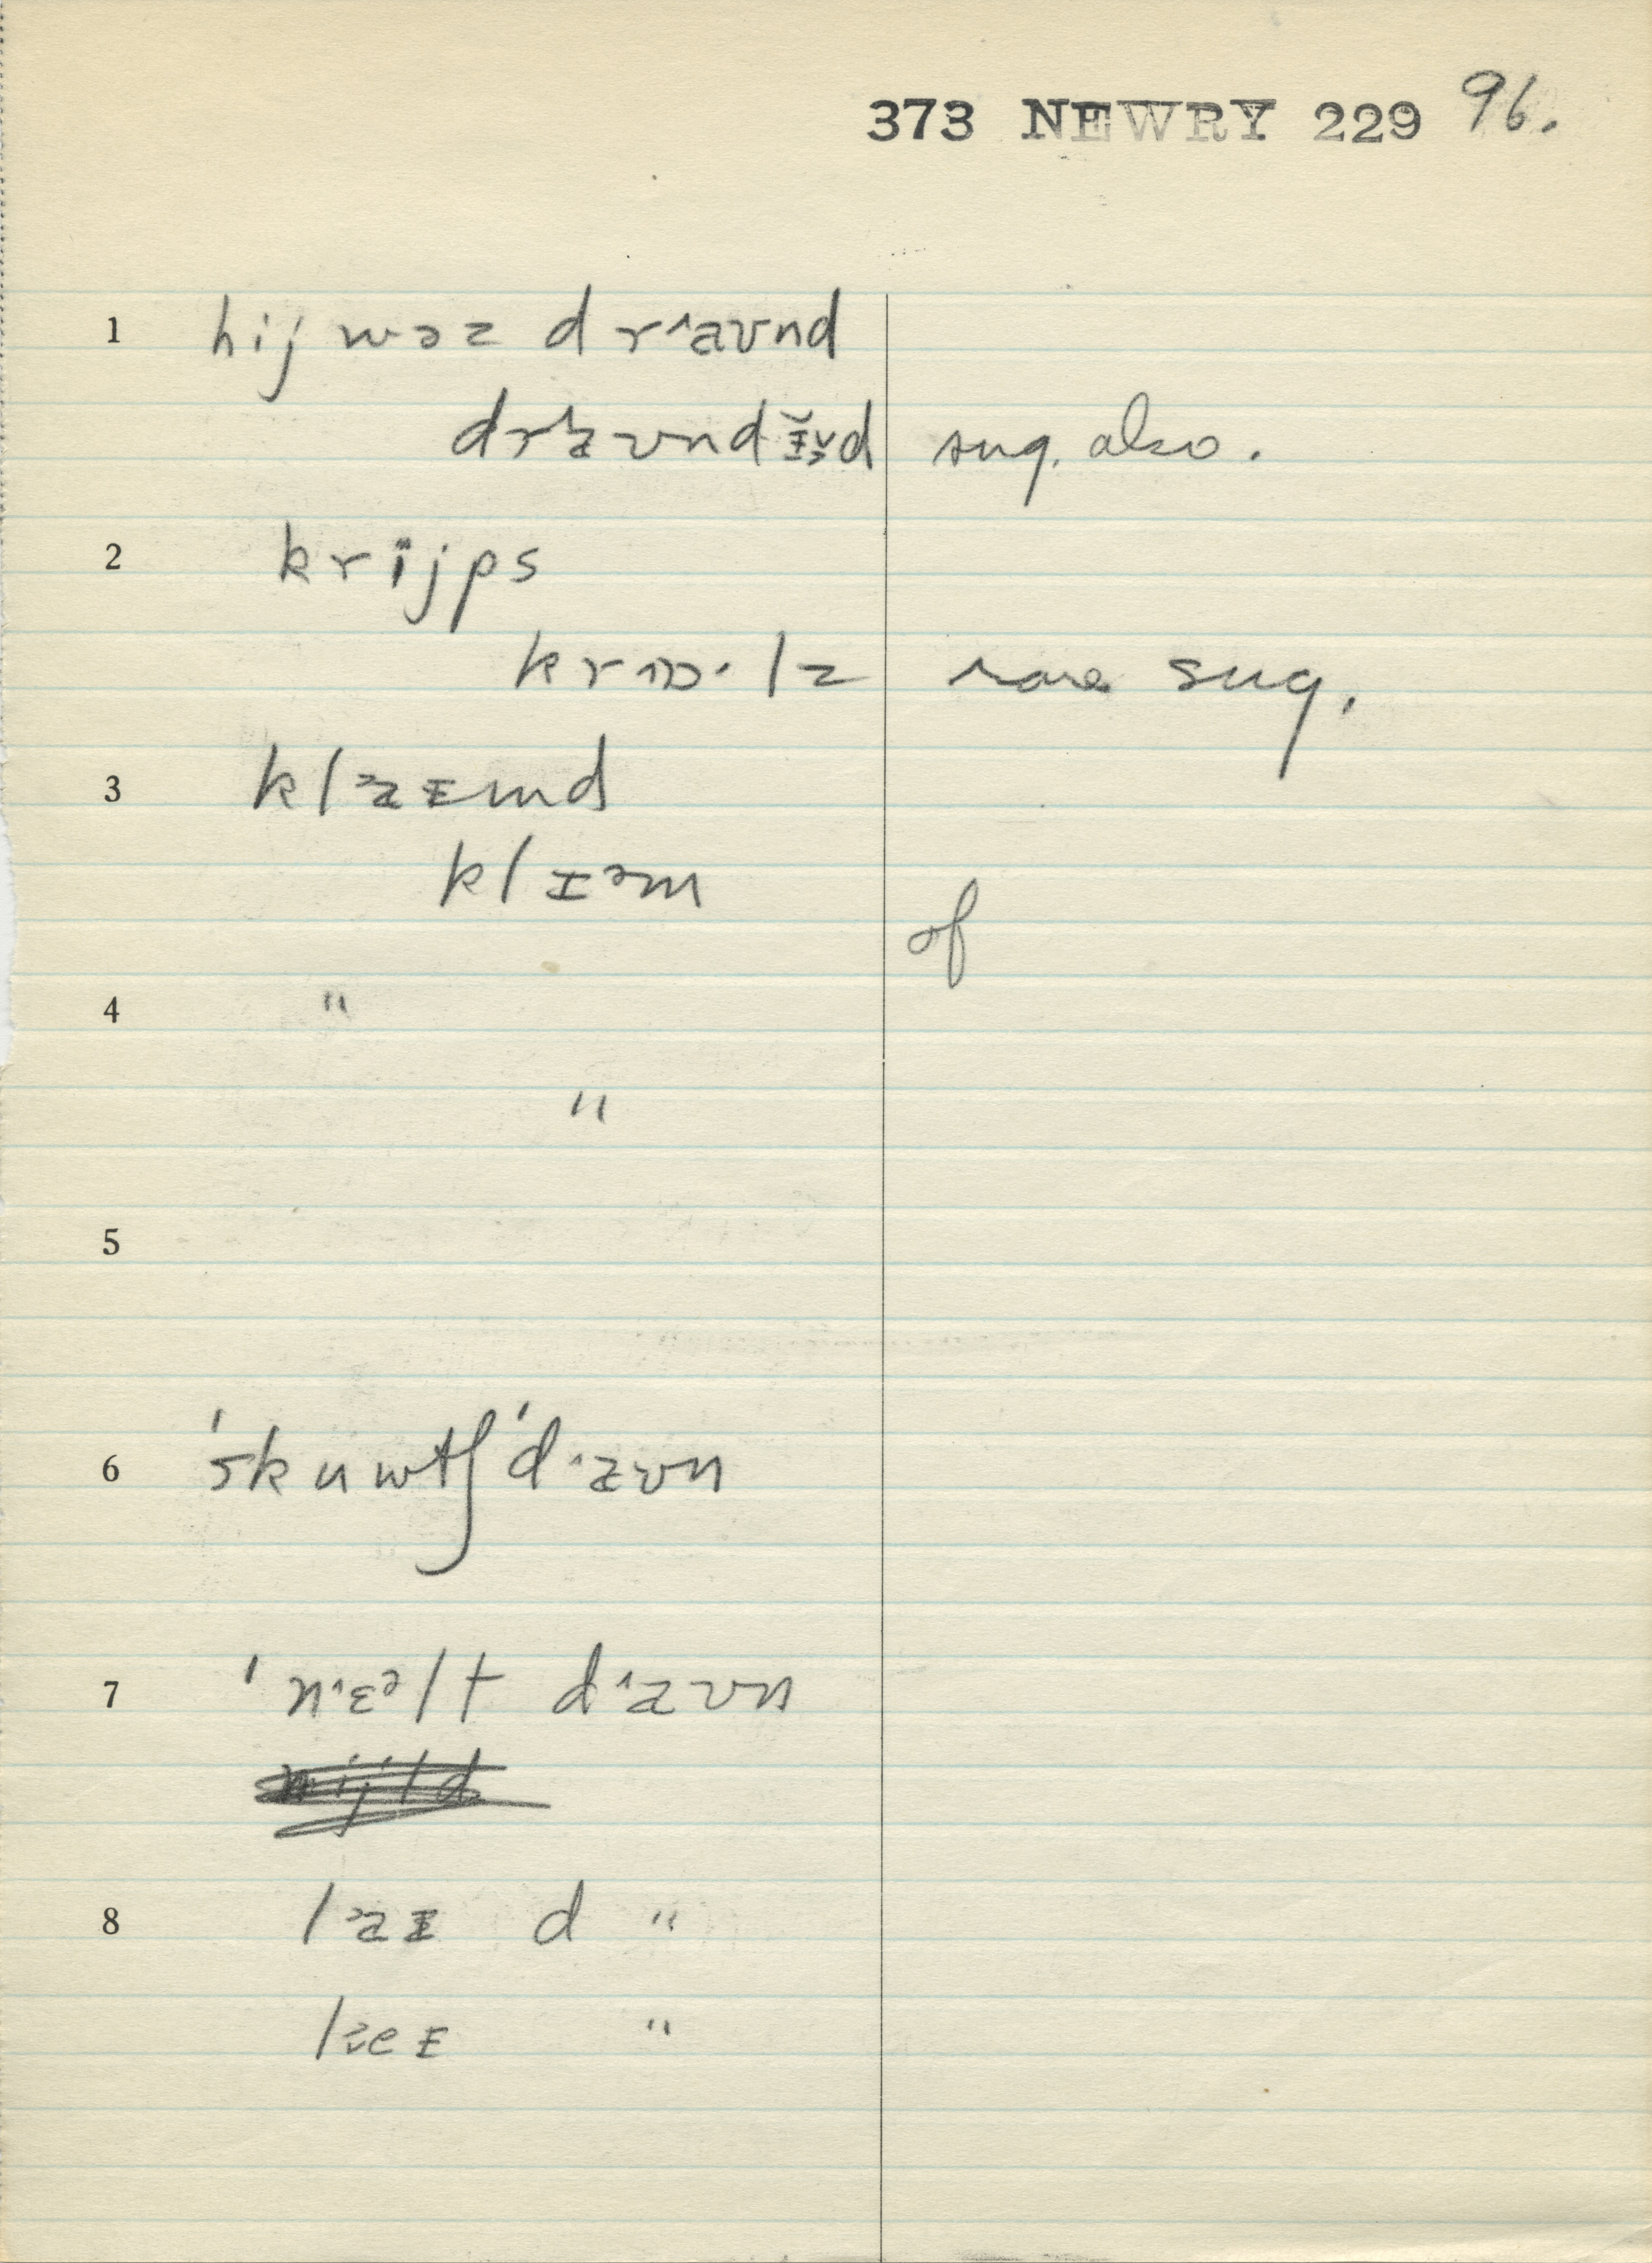 373 NEWRY 229 96.
1 hij wəz drˆaʊnd
drˆaʊndɪ̆d sug. also.
2 krijps
krɒ·lz rare sug.
3 klaɪmd
klɪᵊm
of
4 "
"
5
6 'skuwtʃ 'dˆaʊn
7 'nˑɛᵊlt dˆaʊn
8 laɪ d "
leɪ "